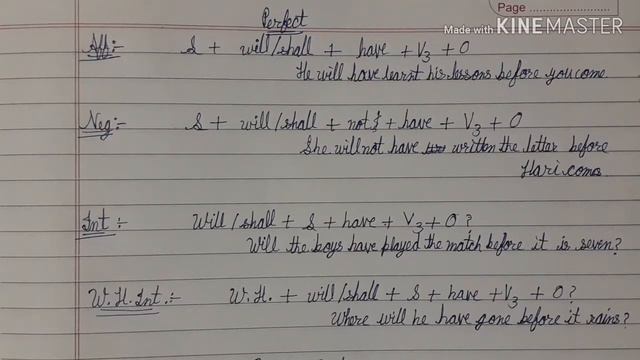 Page
Made with KINEMASTER
Perfect
Aff:- S + will/shall + have + V3 + O
He will have learnt his lessons before you come.
Neg:- S + will/shall + not + have + V3 + O
She will not have written the letter before
Hari comes
Int:- Will/shall + S + have + V3 + O?
Will the boys have played the match before it is seven?
W.H. Int.:- W.H. + will/shall + S + have + V3 + O?
Where will he have gone before it rains?